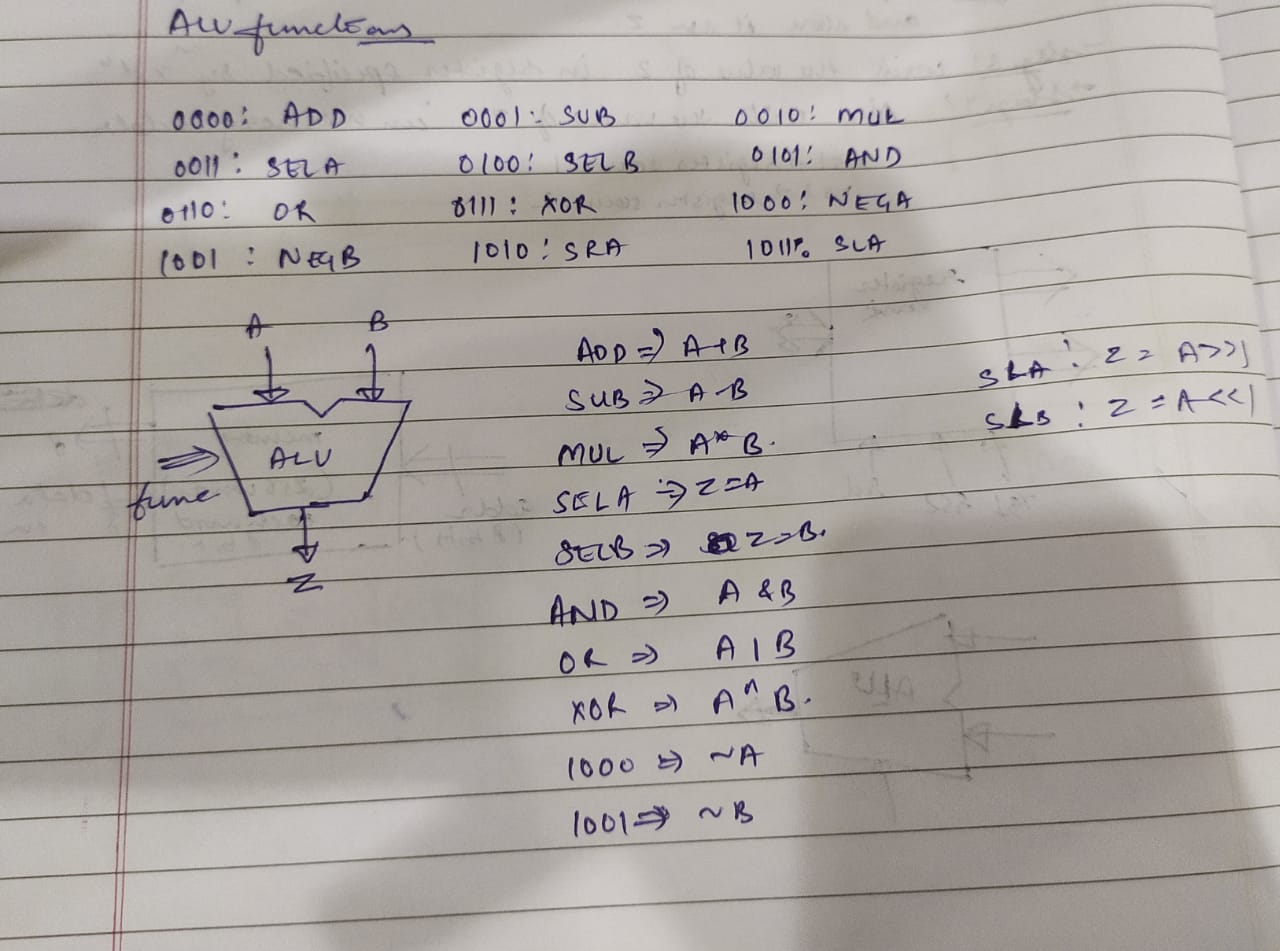 ALU functions
0000: ADD 0001: SUB 0010: MUL
0011: SELA 0100: SELB 0101: AND
0110: OR 0111: XOR 1000: NEGA
1001: NEGB 1010: SRA 1011: SLA
A B
ALU
func
Z
ADD => A+B
SUB => A-B
MUL => A*B.
SELA => Z=A
SELB => Z=B.
AND => A & B
OR => A | B
XOR => A ^ B.
1000 => ~A
1001 => ~B
: Z = A>>1
: Z = A<<1